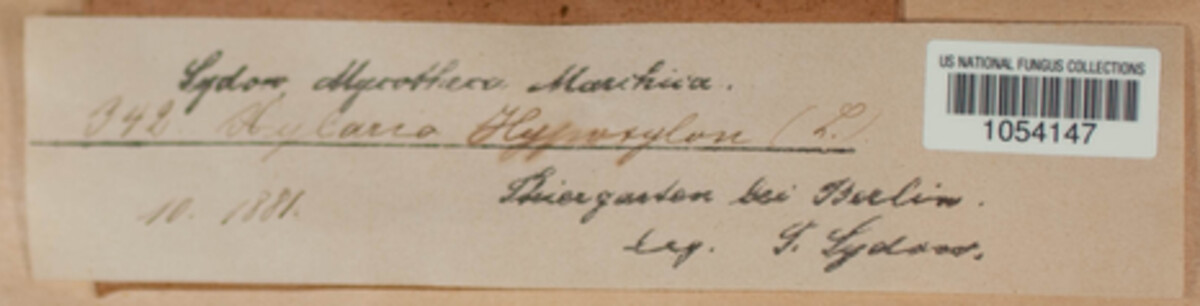 Sydow, Mycotheca Marchica.
342. Xylaria Hypoxylon (L.)
10. 1881.
Thiergarten bei Berlin.
leg. P. Sydow.
US NATIONAL FUNGUS COLLECTIONS
1054147